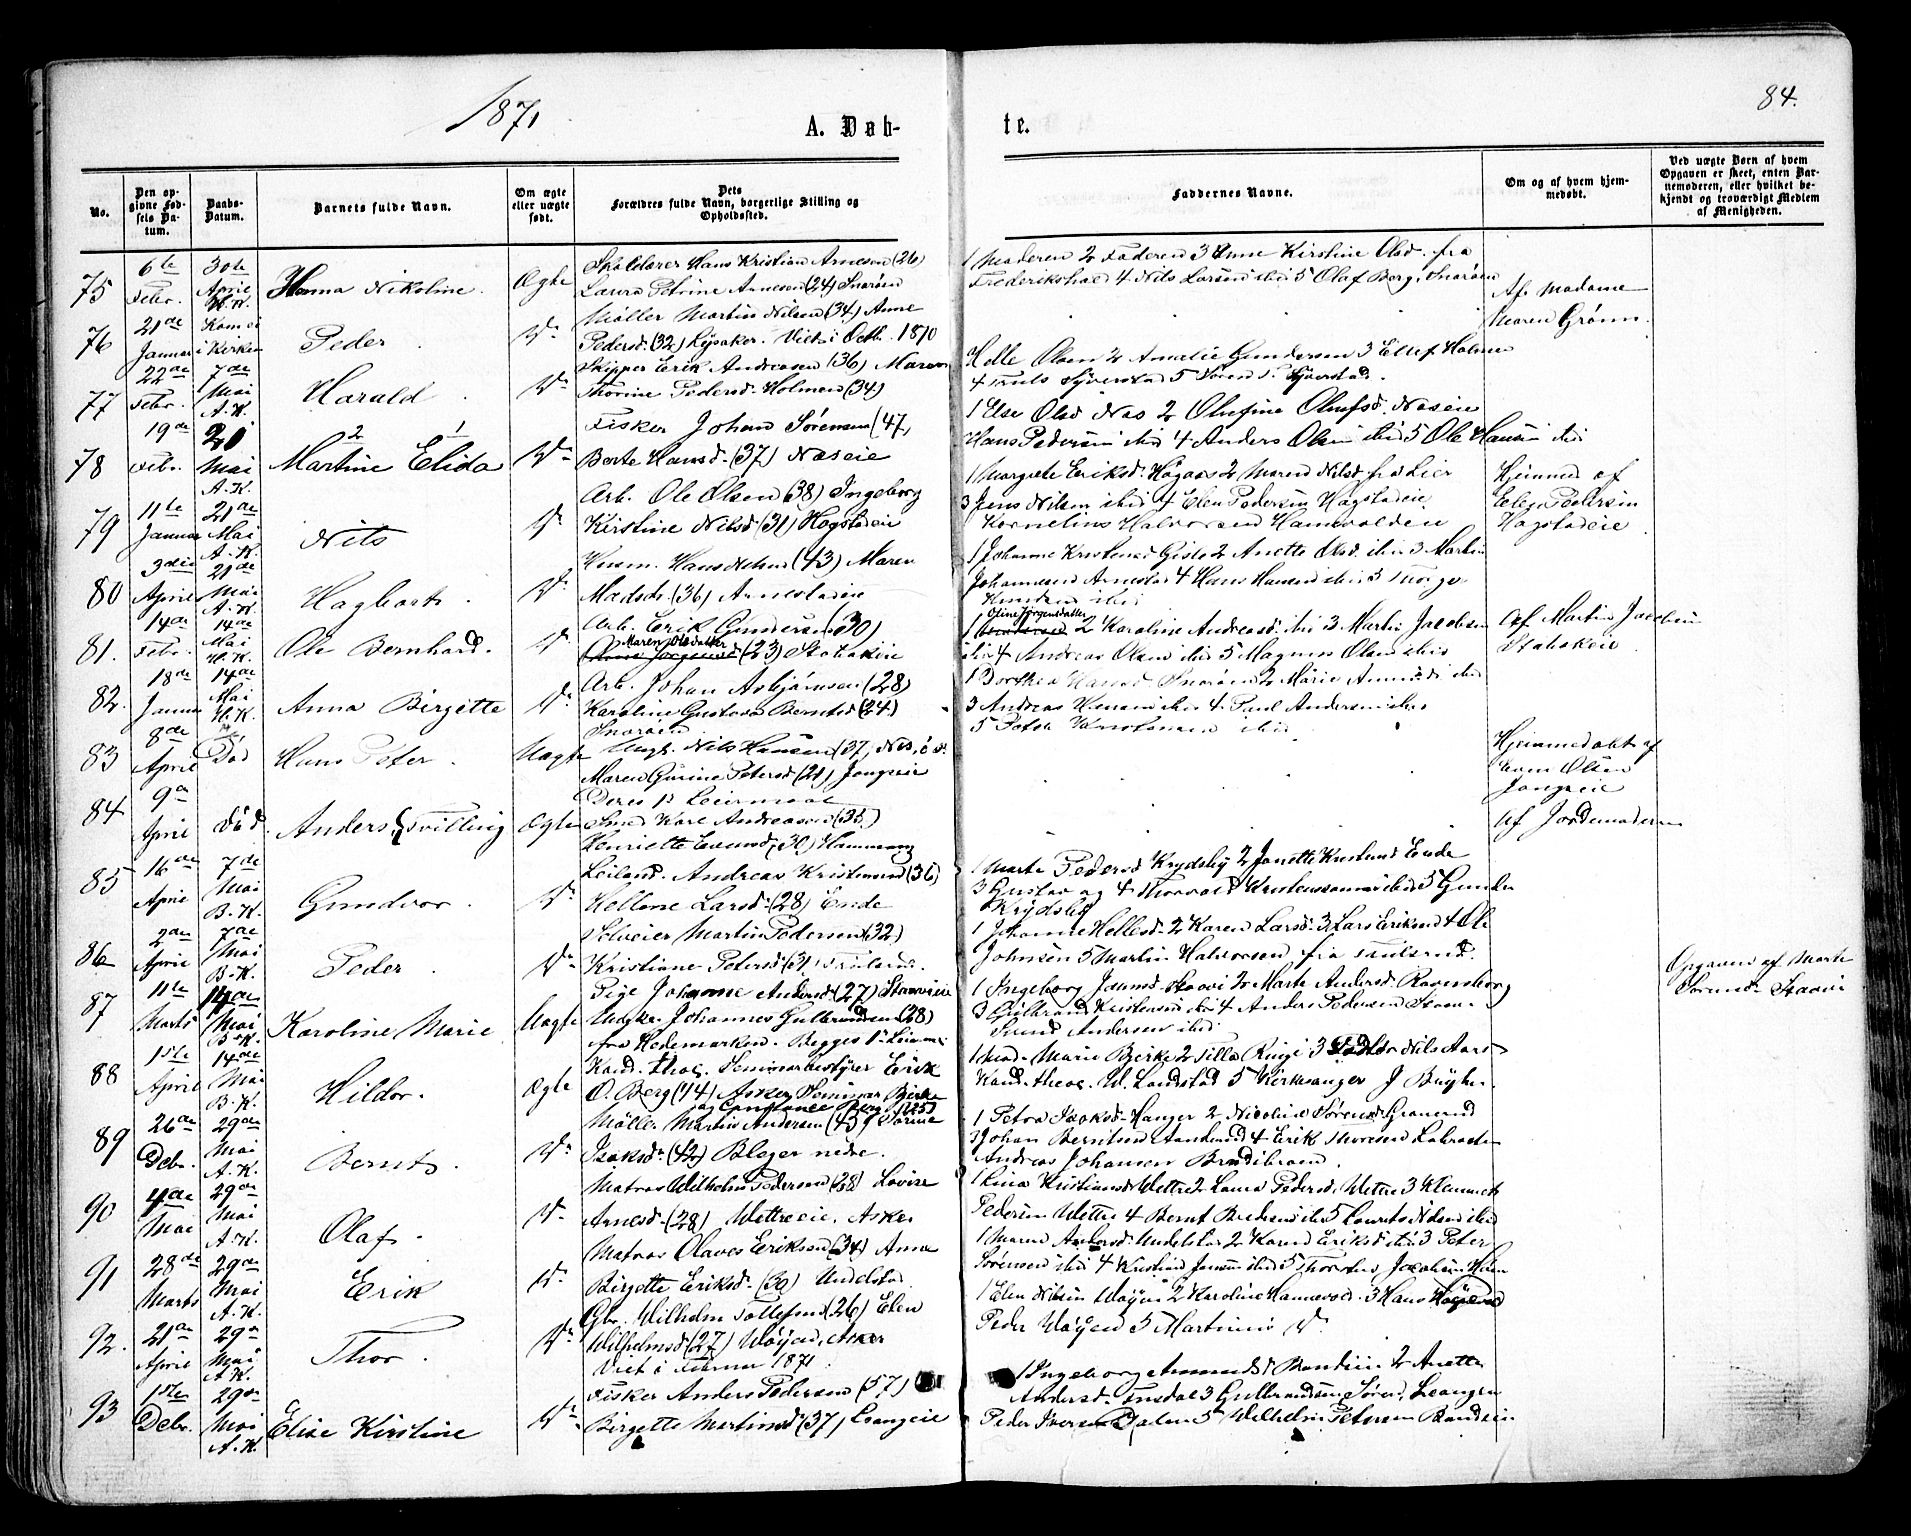 1871
84.
A. Døb-
te.
No.
Den op-
givne Fød-
sels Da-
tum.
Daabs-
Datum.
Barnets fulde Navn.
Om ægte
eller uægte
født.
Dets
Forældres fulde Navn, borgerlige Stilling og
Opholdssted.
Faddernes Navne.
Om og af hvem hjem-
medøbt.
Ved uægte Børn af hvem
Opgaven er skeet, enten Bar-
nemoderen, eller hvilket be-
kjendt og troværdigt Medlem
af Menigheden.
75
6te
Febr.
30te
April
H.K.
Hanna Nikoline.
Ægte
Hans Kristian Arnesen (26)
Laura Petrine Arnesen (24) Snarøen
1 Moderen 2 Faderen 3 Anne Kirstine Olsd. fra
Frederikshal 4 Nils Larsen ibid 5 Olaf Berg, Snarøen
Af Madame
Maren Grønn.
76
21de
Januar
Kom ei
i Kirken
Peder
Do
Møller Martin Nilsen (34) Anne
Pedersd. (32) Lysaker. Viet i Octb. 1870
77
22de
Febr.
7de
Mai
A.K.
Harald
Do
Skipper Erik Andreasen (36) Maren
Thorine Pedersd. Holmen (34)
Helle Olsen 2 Amalie Gundersen 3 Ellef Holmen
4 Truls Syverstad 5 Søren S. Syverstad.
78
19de
Febr.
21
Mai
A.K.
Martine Elida
Do
Fisker Johan Sørensen (47)
Berte Hansd. (37) Næseie
1 Else Olsd Næs 2 Olufine Olufsd. Næseie
Hans Pedersen ibid 4 Anders Olsen ibid 5 Ole Hansen ibid
79
11te
Januar
21de
Mai
A.K.
Nils
Do
Arb. Ole Olsen (38) Ingeborg
Kirstine Nilsd (31) Hogstadeie
1 Margrete Eriksd. Høgaas 2 Maren Nilsd fra Lier
3 Jens Nilsen ibid 4 Elen Pedersen Hagstadeie
Kornelius Halvorsen Hannevolden
Hjemmed af
Elen Pedersen
Hogstadeie
80
3die
April
21de
Mai
A.K.
Hagbart.
Do
Husm. Hans Nilsen (43) Maren
Madsd. (36) Arnestadeie
1 Johanne Kristensd Gisle 2 Anette Olsd. ibid 3 Martin
Johannesen Arnestad 4 Hans Hansen ibid 5 Torge
Knudsen ibid
81.
14de
Febr.
14de
Mai
H.K.
Ole Bernhard.
Do
Arb. Erik Gundersen (30)
Maren Olsdatter
(23) Stabækeie
Oline Jørgensdatter
1 2 Karoline Andreasd. ibid 3 Martin Jacobsen
ibid 4 Andreas Olsen ibid 5 Magnus Olsen ibid
Af Martin Jacobsen
Stabekeie
82.
18de
Januar
14de
Mai
H.K.
Anna Birgitte
Do
Arb. Johan Asbjørnsen (28)
Karoline Gustava Berntsd (24)
Snarøen
1 Dorthea Snarøen 2 Marie ibid
3 Andreas Hansen ibid 4 Paul Andersen ibid
5 Peter ibid
83
8de
April
Død
Hans Peter.
Uægte
Ungk. Nils Hansen (37)
Maren Gurine Petersd (21) Jongseie
Deres 1ste Leiermaal
Hjemmedøbt af
Even Olsen
Jongseie
84
9de
April
død.
Anders, Tvilling
Ægte
Smed Karl Andreasen (35)
Henriette Evensd. (30) Hammang
Af Jordemoderen
85
16de
April
7de
Mai
B.K.
Gundvor.
Do
Leiland. Andreas Kristensen (36)
Hellene Larsd. (28) Ende
1 Marte Pedersd Krydsby 2 Janette Ende
3 Gustav og 4 Thorvald Kristenssønner ibid 5 Gunder
Krydsby
86
2den
April
7de
Mai
B.K.
Peder.
Do
Selveier Martin Pedersen (32)
Kristiane Petersd (31)
1 Johanne Hellesd. 2 Karen Larsd. 3 Lars Eriksen 4 Ole
Johnsen 5 Martin Halvorsen fra
87
11te
Marts
14de
Mai
B.K.
Karoline Marie
Uægte
Pige Johanne Andersd (27) Staavieie
Ungkar Johannes Gulbrandsen (28)
fra Hedemarken. Begges 1ste
1 Ingeborg Staavi 2 Marte Andersd. Ravnsborg
3 Gulbrand Kristensen ibid 4 Anders Pedersen
Svend Andersen ibid
Opgaven af Marte
Sørensd. Staavi
88
1ste
April
14de
Mai
B.K.
Hildor.
Ægte
Kand. theol. Seminarbestyrer Erik
O. Berg (44) Asker Seminar Bjerke
og Constance Berg. (25)
1 Mad. Marie Bjerke 2 Silla Ringi 3 Nils Aars
Kand. theol. W. Landstad 5 Kirkesanger J. Bugge.
89
26de
Debr.
29de
Mai
A.K.
Bernt.
Do
Møller Martin Andersen (45) Sørine
Isaksd. (42) Bleger nedre.
1 Petra Isaksd. Hanger 2 Nicoline Sørensd. Graverud
3 Johan Berntsen 4 Erik Thoresen
Andreas Johansen
90
4de
Mai
29de
Mai
A.K.
Olaf.
Do
Matros Wilhelm Pedersen (28) Lovise
Arnesd. (28) Wettreeie. Asker
1 Lina Kristiansd. Wettre 2 Laura Pedersd. Wettre 3 Klemmet
Pedersen Wettre 4 Bernt ibid 5 Laurits Nilsen ibid
91
28de
Marts
29de
Mai
A.K.
Erik
Do
Matros Olaves Eriksen (34) Anna
Birgitte Eriksd. (30) Undelstad
1 Maren Andersd. Undelstad 2 Karen Eriksd. ibid 3 Peter
Sørensen ibid 4 Kristian Jansen ibid 5 Jacobsen
92.
21de
April
29de
Mai
A.K.
Thor.
Do
Gbr. Wilhelm Tollefsen (26) Elen
Wilhelmsd (27) Wøyen, Asker
Viet i Februar 1871.
1 Elen Nilsen Wøyen 2 Karoline Hannevold. 3 Hans
Peder Wøyen 5 Martinius Do
93
1ste
Debr.
29de
Mai
A.K.
Elise Kirstine
Do
Fisker Anders Pedersen (57)
Birgette Martinsd. (37) Leangeie
1 Ingeborg Amundsd. 2 Anette
Andersd. 3 Gulbrandsen Søren, Leangen
Peder Iversen Dalen 5 Wilhelm Petersen